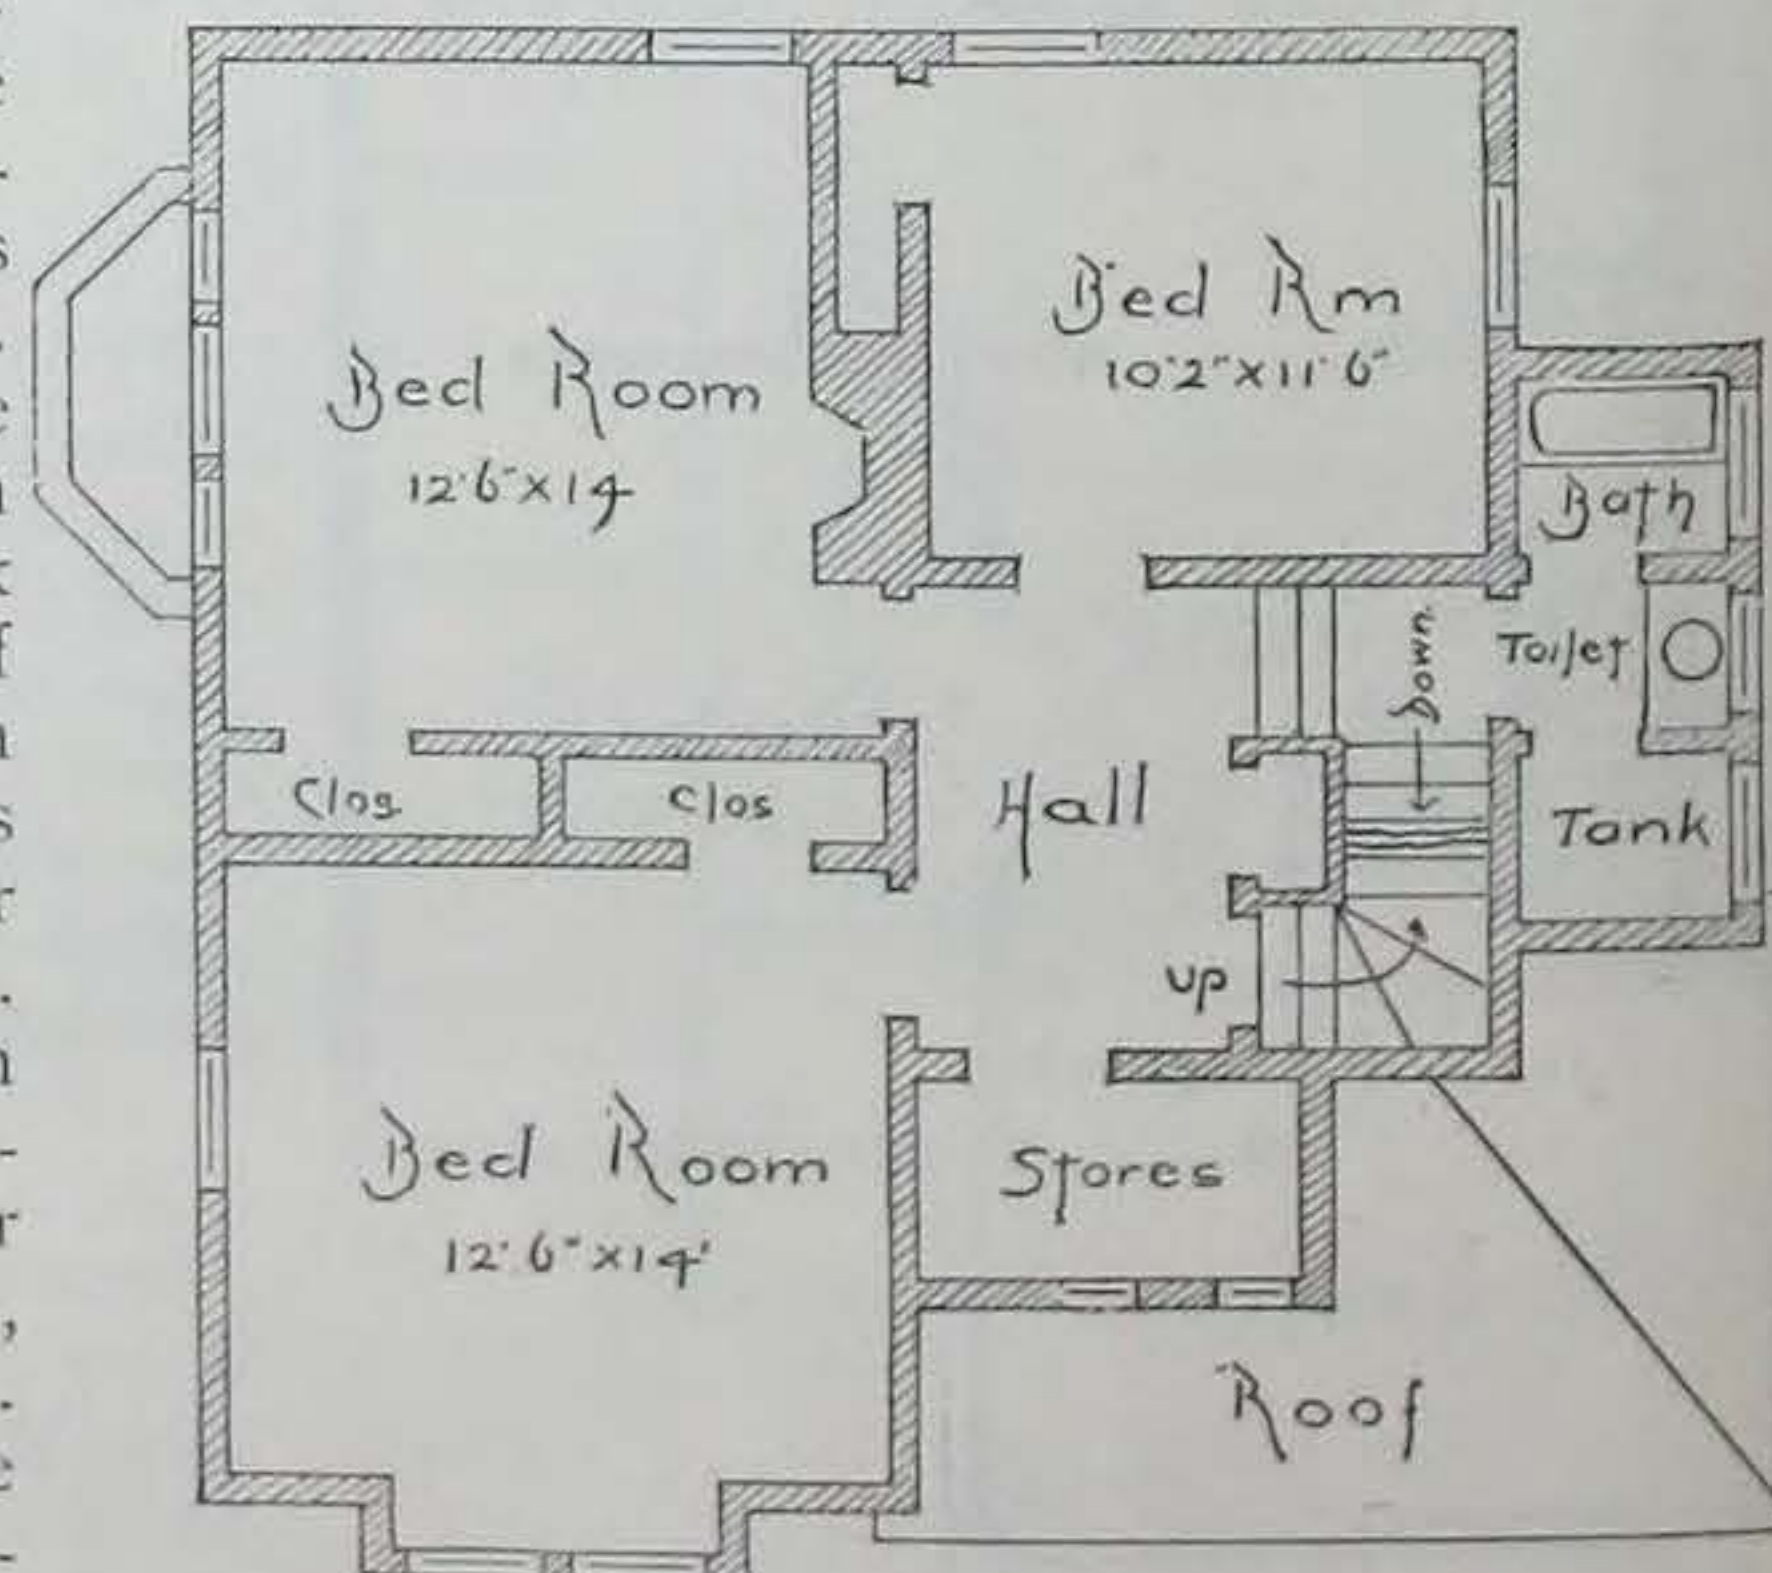 Bed Room
12'6"x14
Bed Rm
10'2"x11'6"
Bath
Toilet
Down.
Clos
Clos
Hall
Tank
Up
Bed Room
12'6"x14'
Stores
Roof